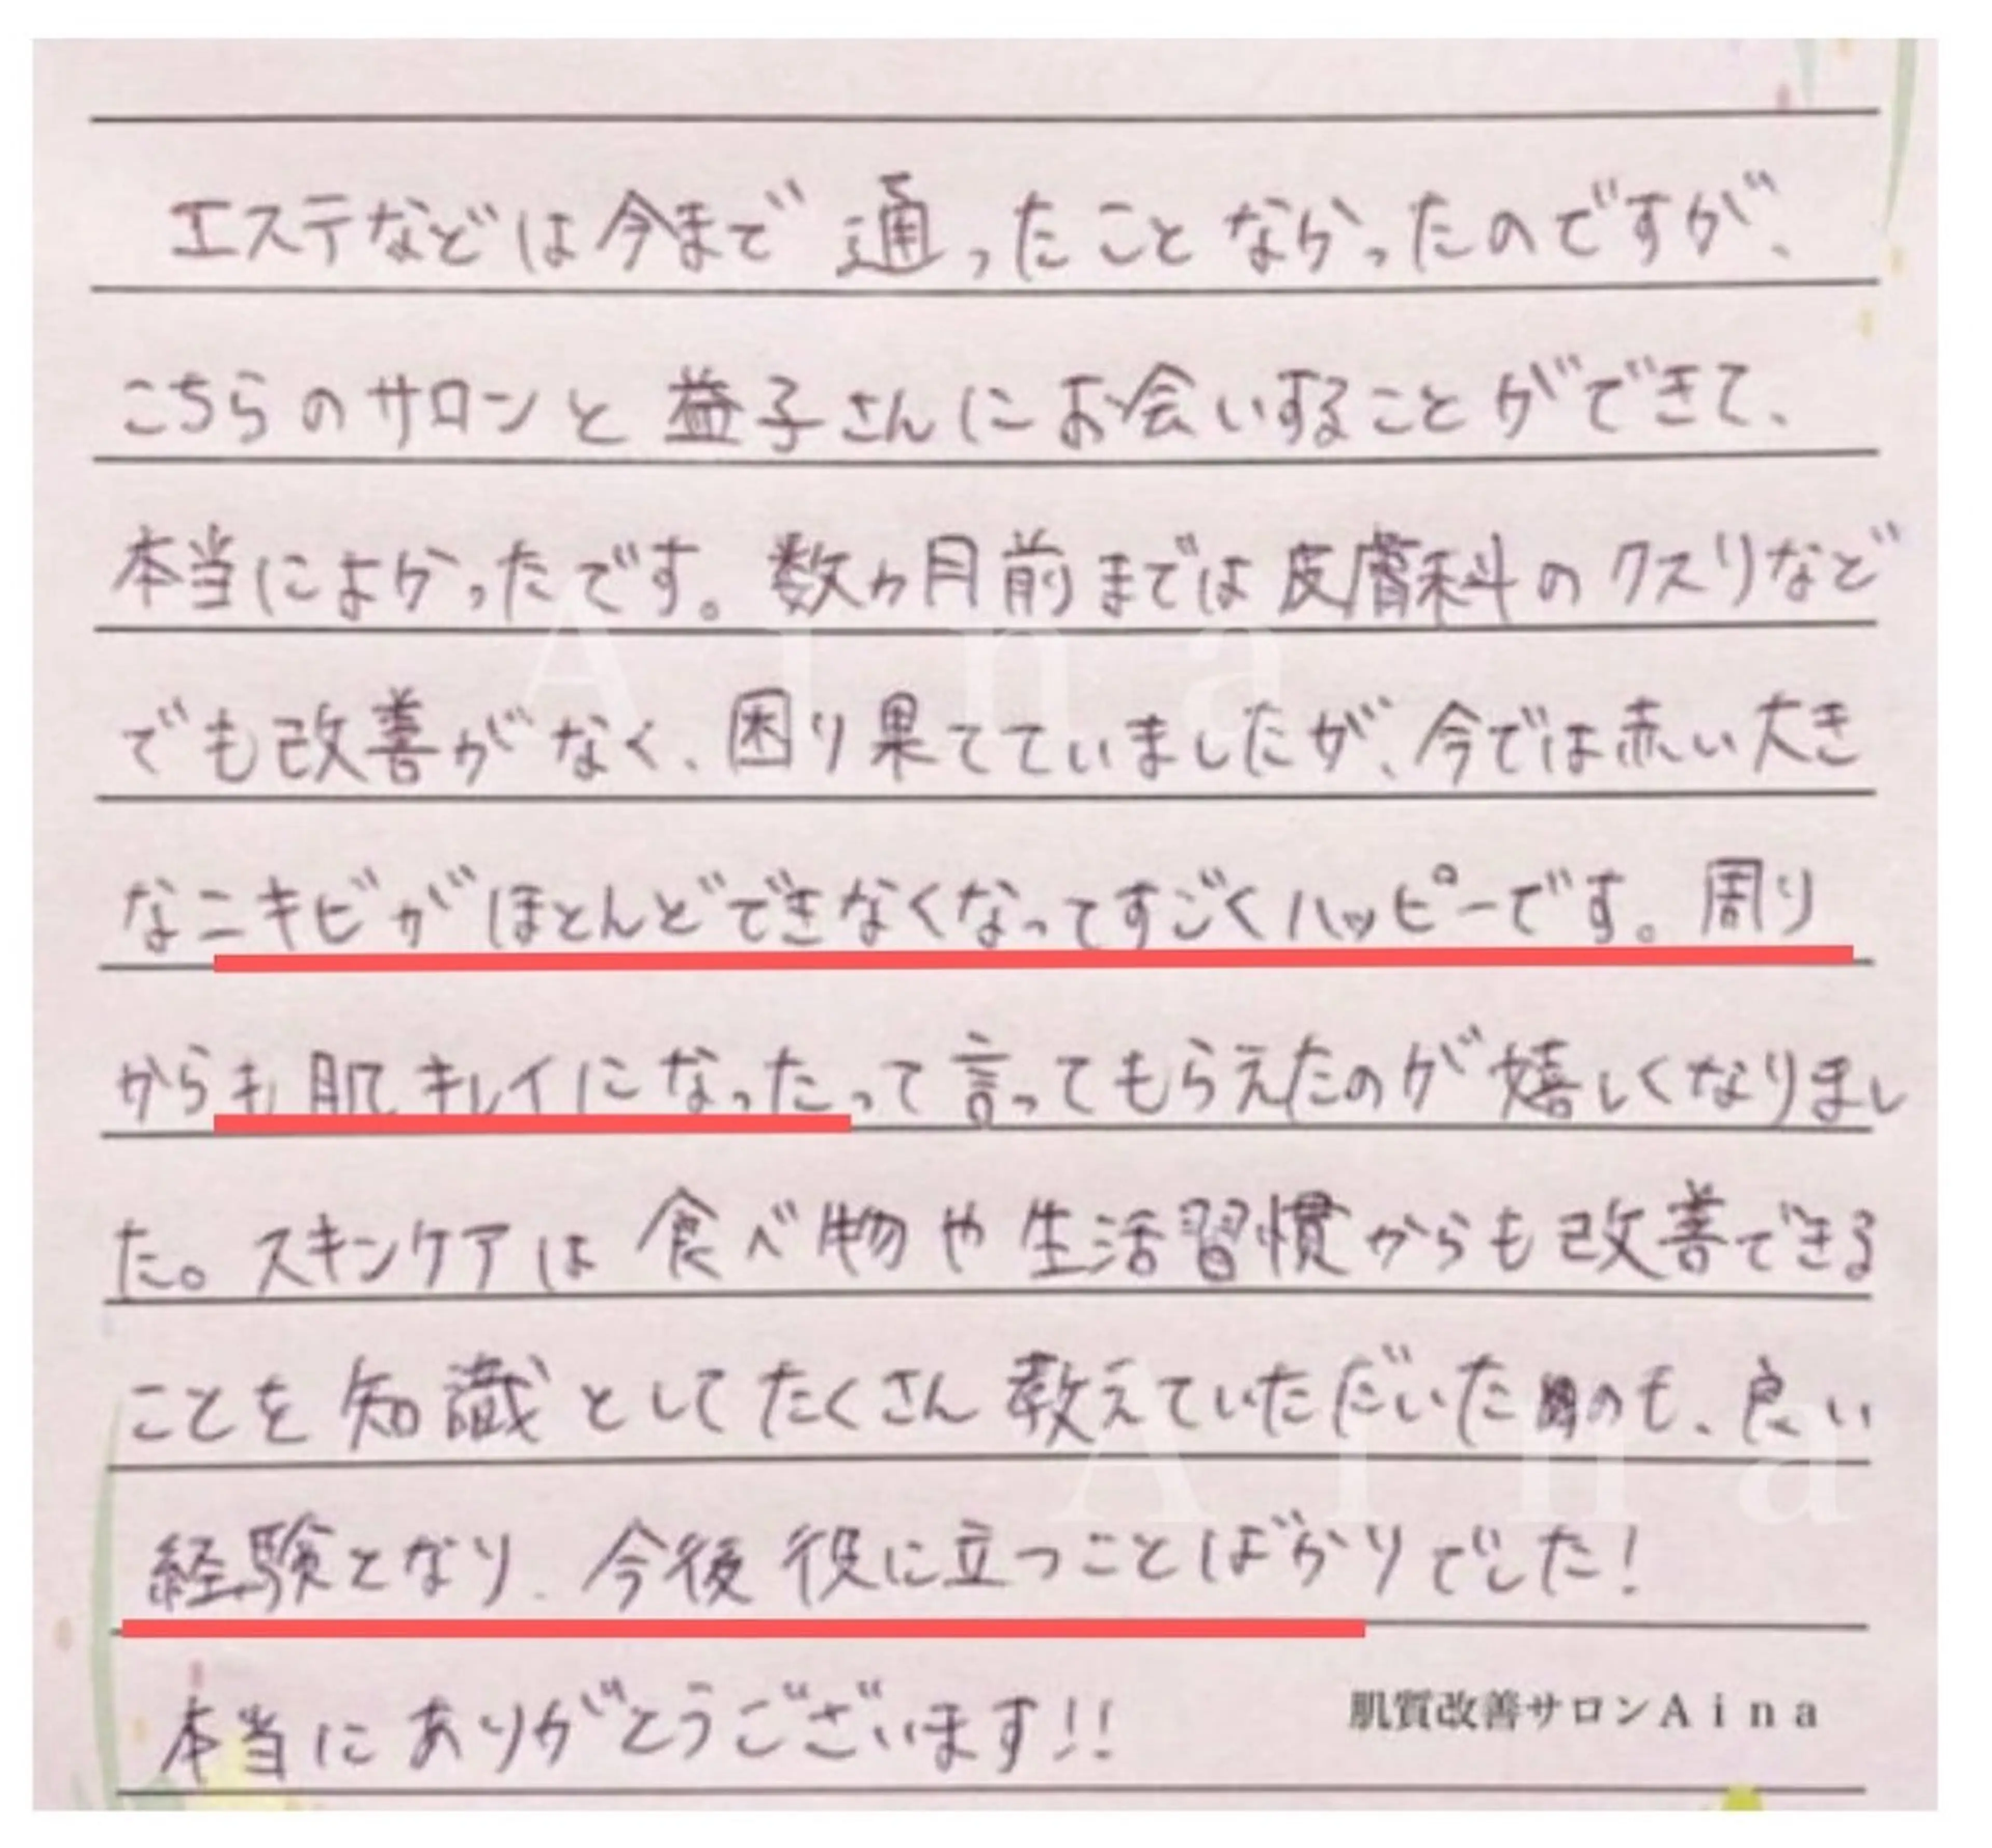 エステなどは今まで通ったことなかったのですが、
こちらのサロンと益子さんにお会いすることができて、
本当によかったです。数ヵ月前までは皮膚科のクスリなど
でも改善がなく、困り果てていましたが、今では赤い大き
なニキビがほとんどできなくなってすごくハッピーです。周り
からも肌キレイになったって言ってもらえたのが嬉しくなりまし
た。スキンケアは食べ物や生活習慣からも改善できる
ことを知識としてたくさん教えていただいたのも、良い
経験となり、今後役に立つことばかりでした!
本当にありがとうございます!!
肌質改善サロンAina
Aina
Aina